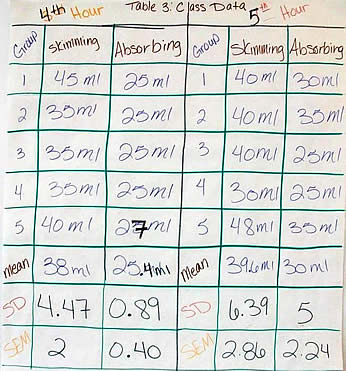 4th Hour Table 3: Class Data 5th Hour
Group Skimming Absorbing Group Skimming Absorbing
1 45ml 25ml 1 40ml 30ml
2 35ml 25ml 2 40ml 35ml
3 35ml 25ml 3 40ml 25ml
4 35ml 25ml 4 30ml 25ml
5 40ml 27ml 5 48ml 35ml
Mean 38ml 25.4ml Mean 39.6ml 30ml
SD 4.47 0.89 SD 6.39 5
SEM 2 0.40 SEM 2.86 2.24